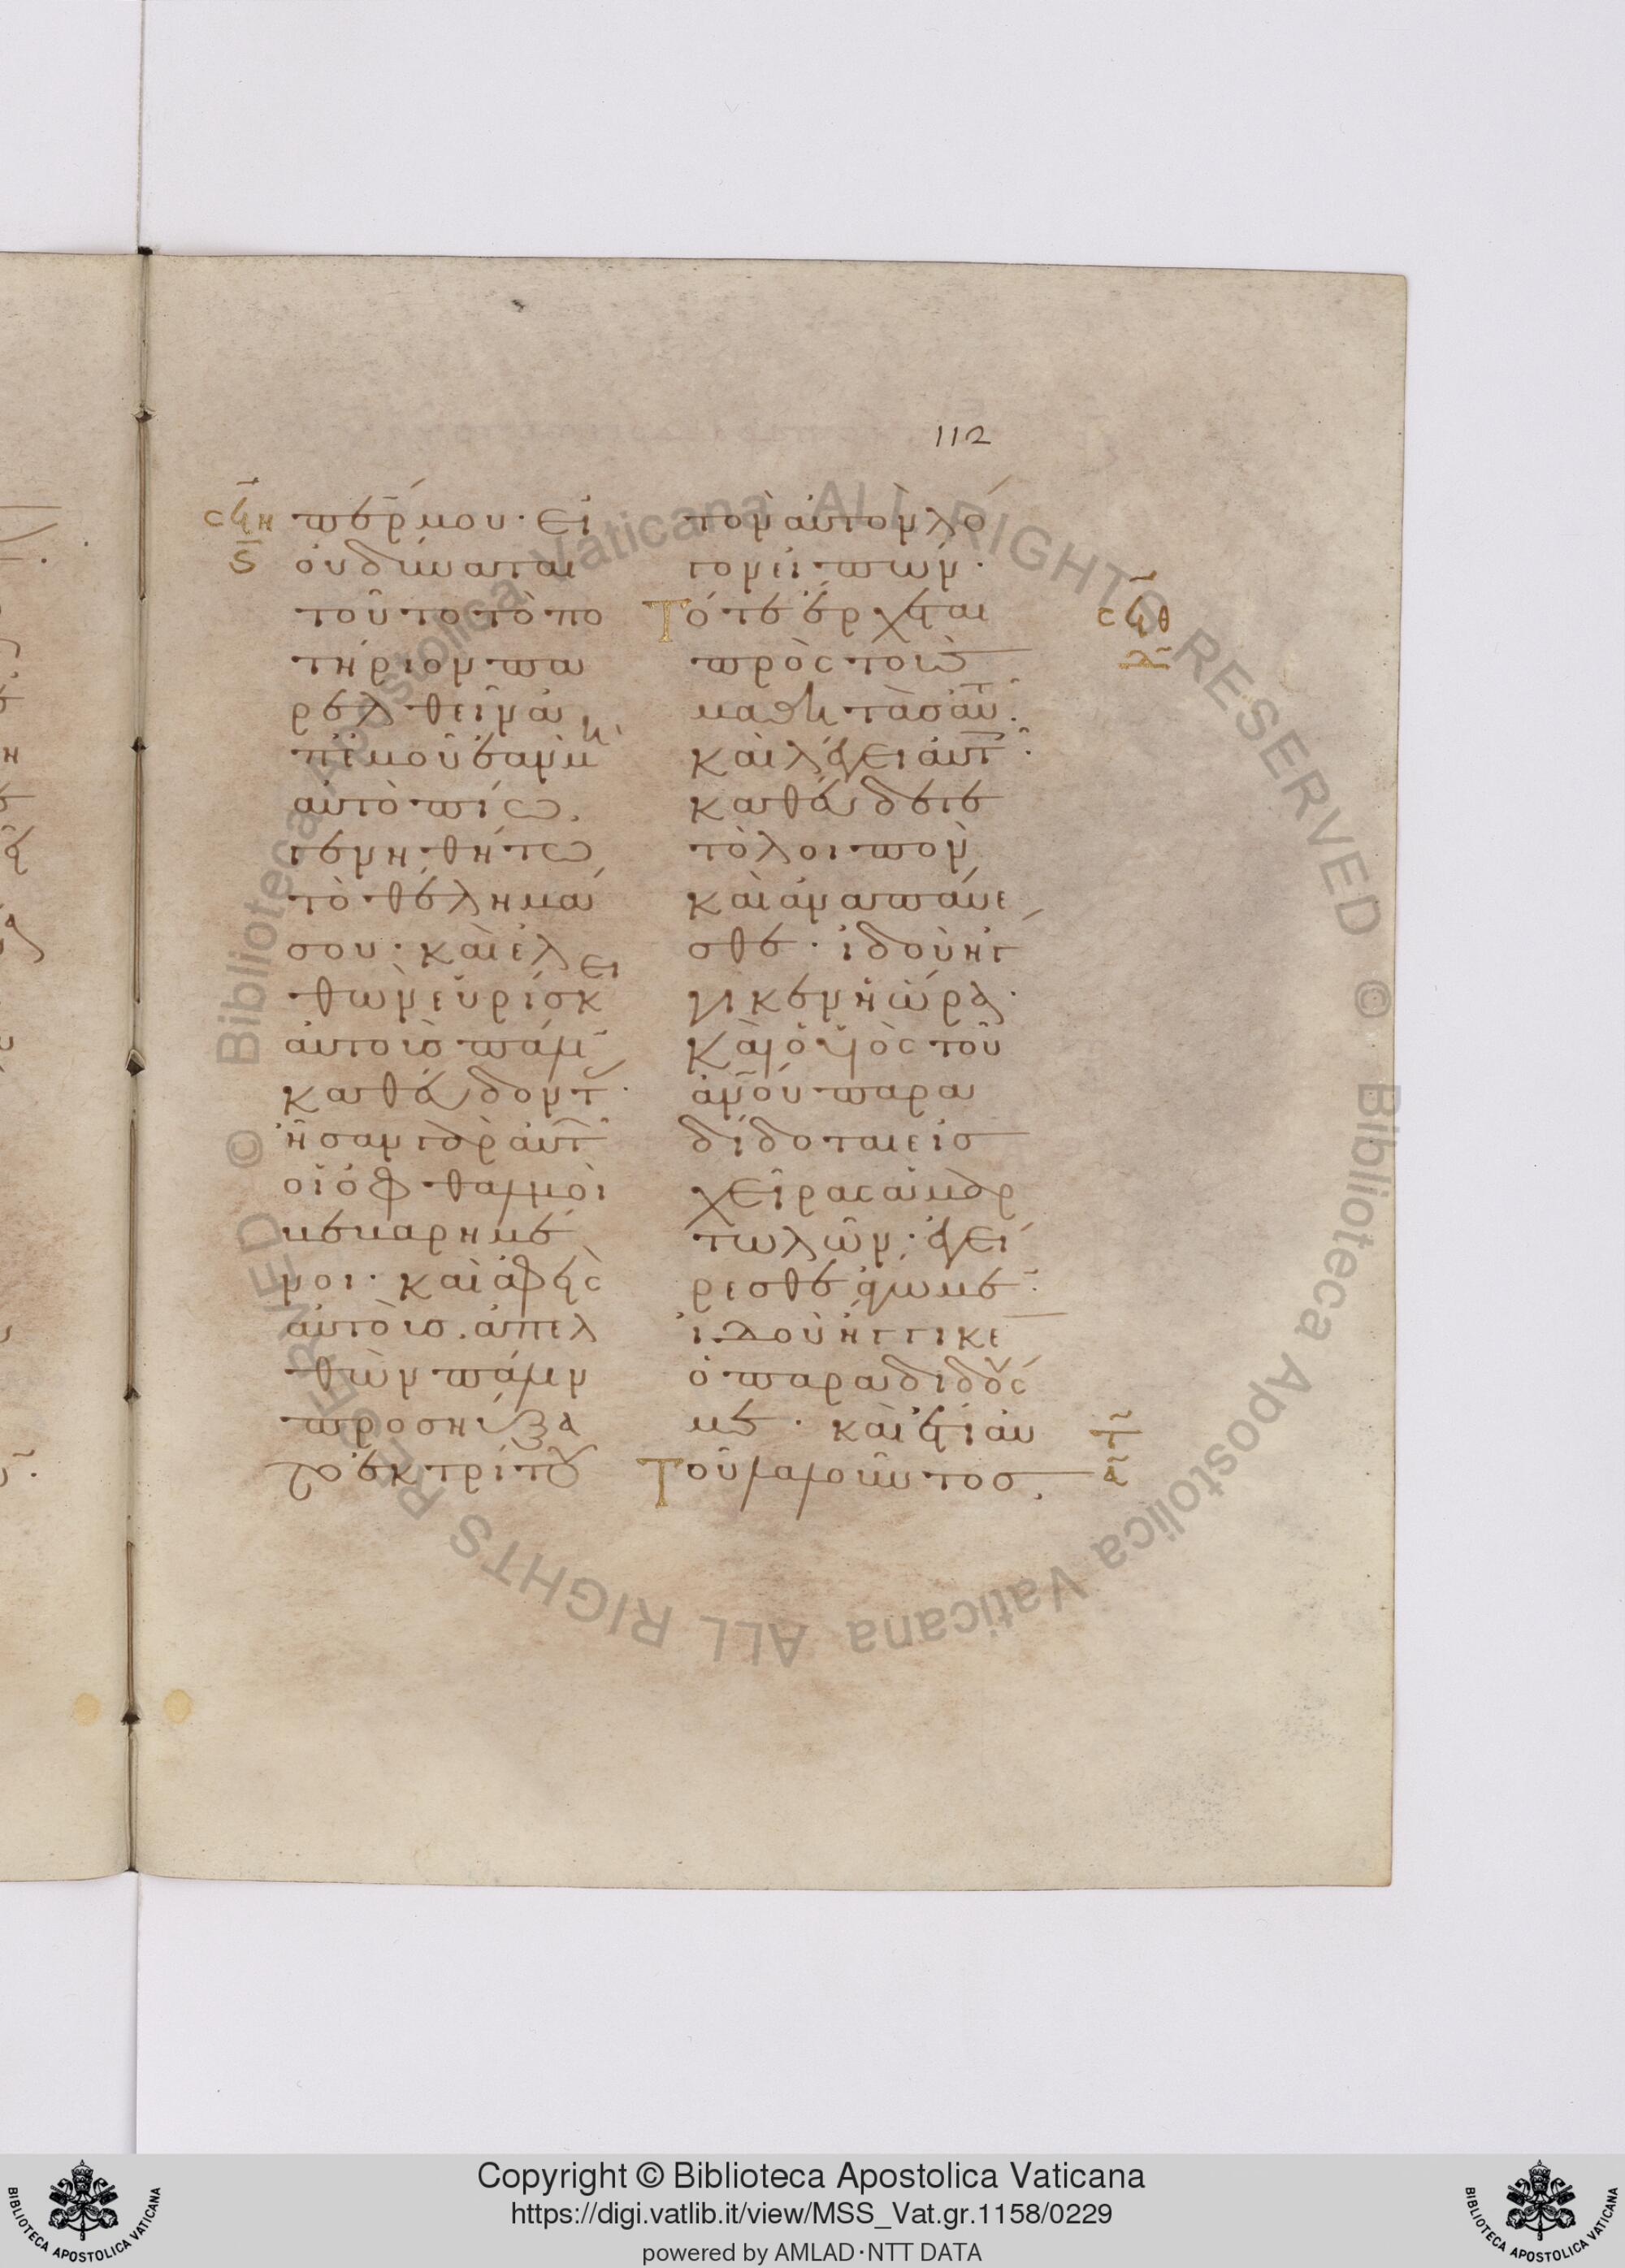 112
σϟη
ϛ
περ μου· εἰ
οὐ δύναται
τοῦτο τὸ πο
τήριον πα
ρελθεῖν ἀ
π' ἐμοῦ ἐὰν μὴ
αὐτὸ πίω.
γενηθήτω
τὸ θέλημά
σου· καὶ ἐλ
θὼν εὑρίσκει
αὐτοὺσ πάλιν
καθεύδοντ·
ἦσαν γὰρ αὐτ
οἱ ὀφθαλμοὶ
βεβαρημέ
νοι· καὶ ἀφεὶς
αὐτοὺσ. ἀπελ
θὼν πάλιν
προσηύξα
το ἐκ τρίτου
τὸν αὐτὸν λό
γον εἰπών·
Τότε ἔρχεται
πρὸς τοὺσ
μαθητὰσ αὐτ.
καὶ λέγει αὐτ·
καθεύδετε
τὸ λοιπὸν
καὶ ἀναπαύε
σθε· ἰδοὺ ἤγ
γικεν ἡ ὥρα·
Καὶ ὁ υἱὸς τοῦ
ἀνου παρα
δίδοται εἰσ
χεῖρας ἁμαρ
τωλῶν· ἐγεί
ρεσθε ἄγωμεν·
ἰδοὺ ἤγγικε
ὁ παραδιδούς
με· καὶ ἔτι αὐ
Τοῦ λαλοῦντοσ.
σϟθ
δ
τ
α
Copyright © Biblioteca Apostolica Vaticana
https://digi.vatlib.it/view/MSS_Vat.gr.1158/0229
powered by AMLAD·NTT DATA
BIBLIOTECA APOSTOLICA VATICANA
BIBLIOTECA APOSTOLICA VATICANA
© Biblioteca Apostolica Vaticana ALL RIGHTS RESERVED
© Biblioteca Apostolica Vaticana ALL RIGHTS RESERVED